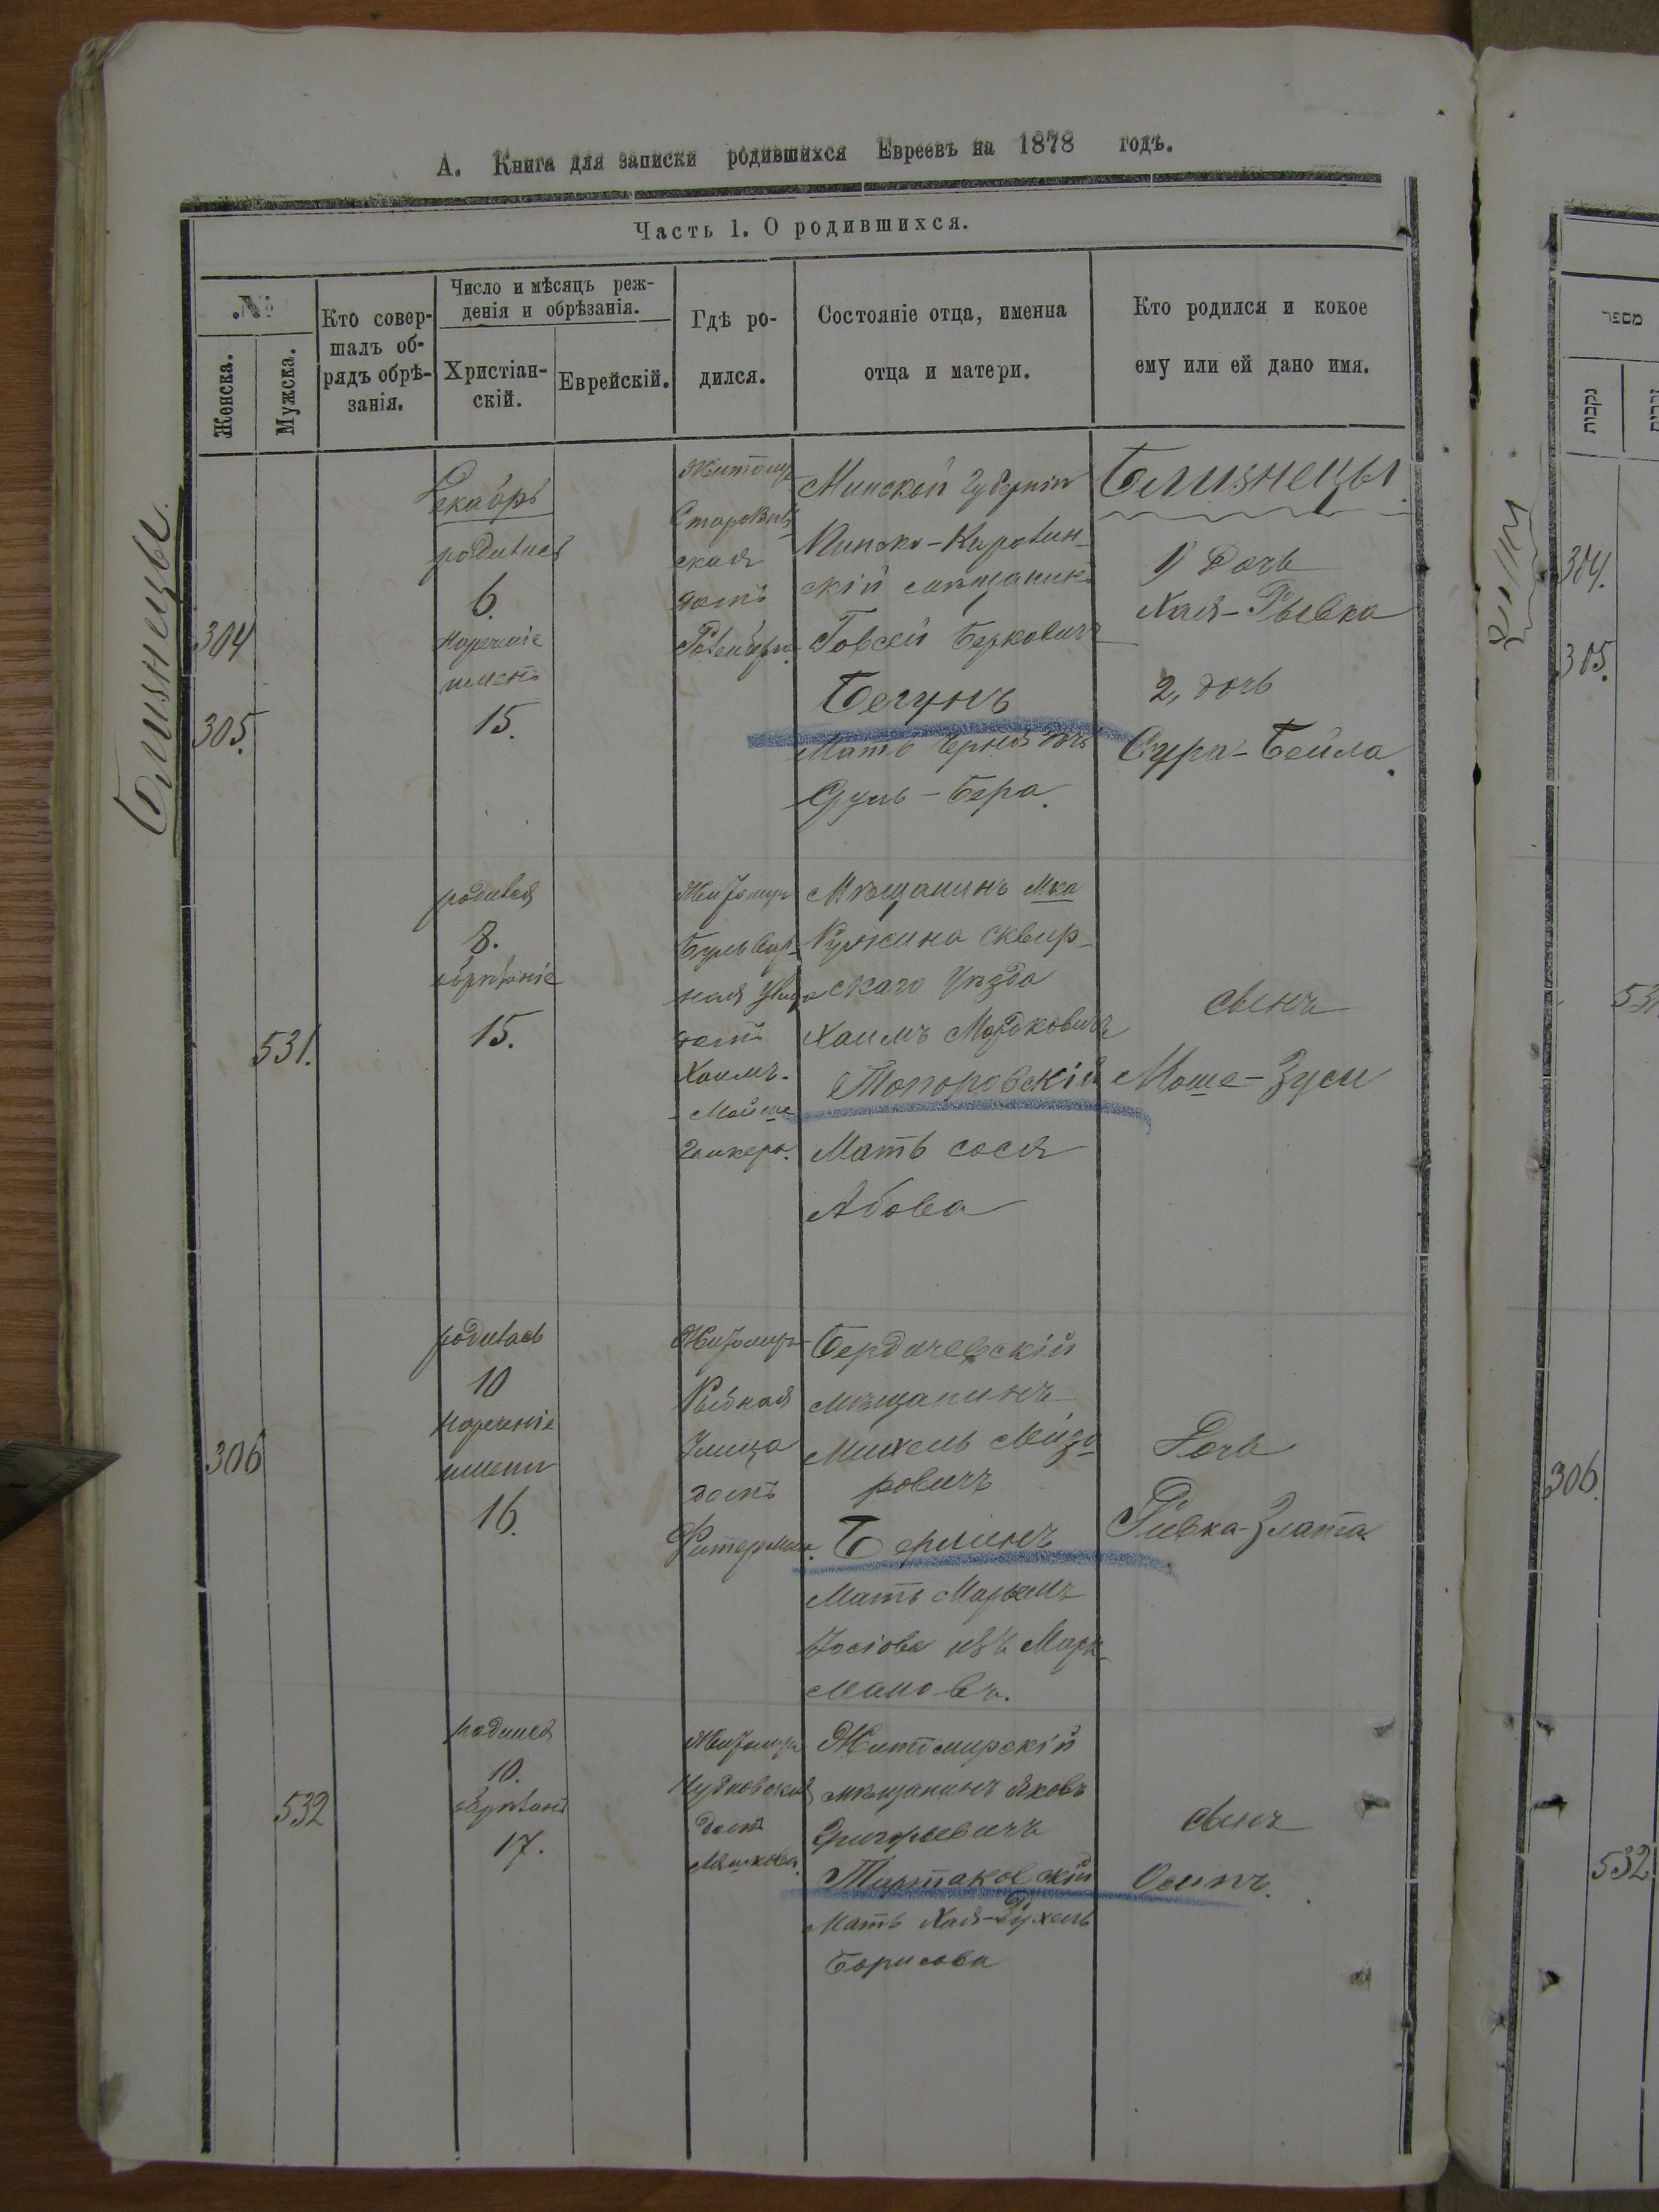 А. Книга для записки родившихся Евреевъ на 1878 годъ.
Часть 1. О родившихся.
№
Женска.
Мужска.
Кто совер-
шалъ об-
рядъ обрѣ-
занія.
Число и мѣсяцъ реж-
денія и обрѣзанія.
Христіан-
скій.
Еврейскій.
Гдѣ ро-
дился.
Состояніе отца, именна
отца и матери.
Кто родился и кокое
ему или ей дано имя.
Близнецы.
304
305.
Декабрь
родилась
6.
Нареченіе
именъ
15.
Житомир
ская
домъ
Минской Губерніи
скій мѣщанинъ
Говсей Берковичъ
Бегунъ
Мать Черня дочь
Сруль-Бера.
Близнецы.
1) дочь
Хая-Рывка
2, дочь
Сура-Бейла.
531.
родился
8.
обрѣзаніе
15.
Житомир
Бульвар-
ная Улица
домъ
Хаимъ-
-Мойше
Мѣщанинъ Мка
Ружина Сквир-
скаго Уѣзда
Хаимъ Мордковичъ
Топоровскій
Мать Сося
Абова
сынъ
Моше-Зуси
306
родилась
10
Нареченіе
имени
16.
Житомиръ
Рыбная
Улица
домъ
Фитерман.
Бердичевскій
мѣщанинъ
Михель Лейзо
ровичъ
Берлинъ
Мать Марьемъ
Іосіова изъ Марк
мановъ.
Дочь
Ривка-Злата
532
родился
10.
обрѣзаніе
17.
Житомиръ
Чудновская
домъ
Житомирскій
мѣщанинъ Яковъ
Григорьевичъ
Мать Хая-Рухель
Борисова
сынъ
Осипъ.
מספר
נקבות
304.
305.
531
306.
532